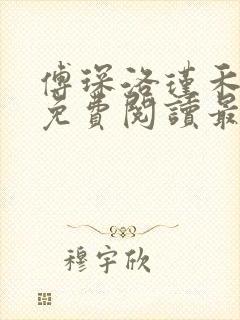 傅琛洛瑾禾
免費閱讀最
穆宇欣